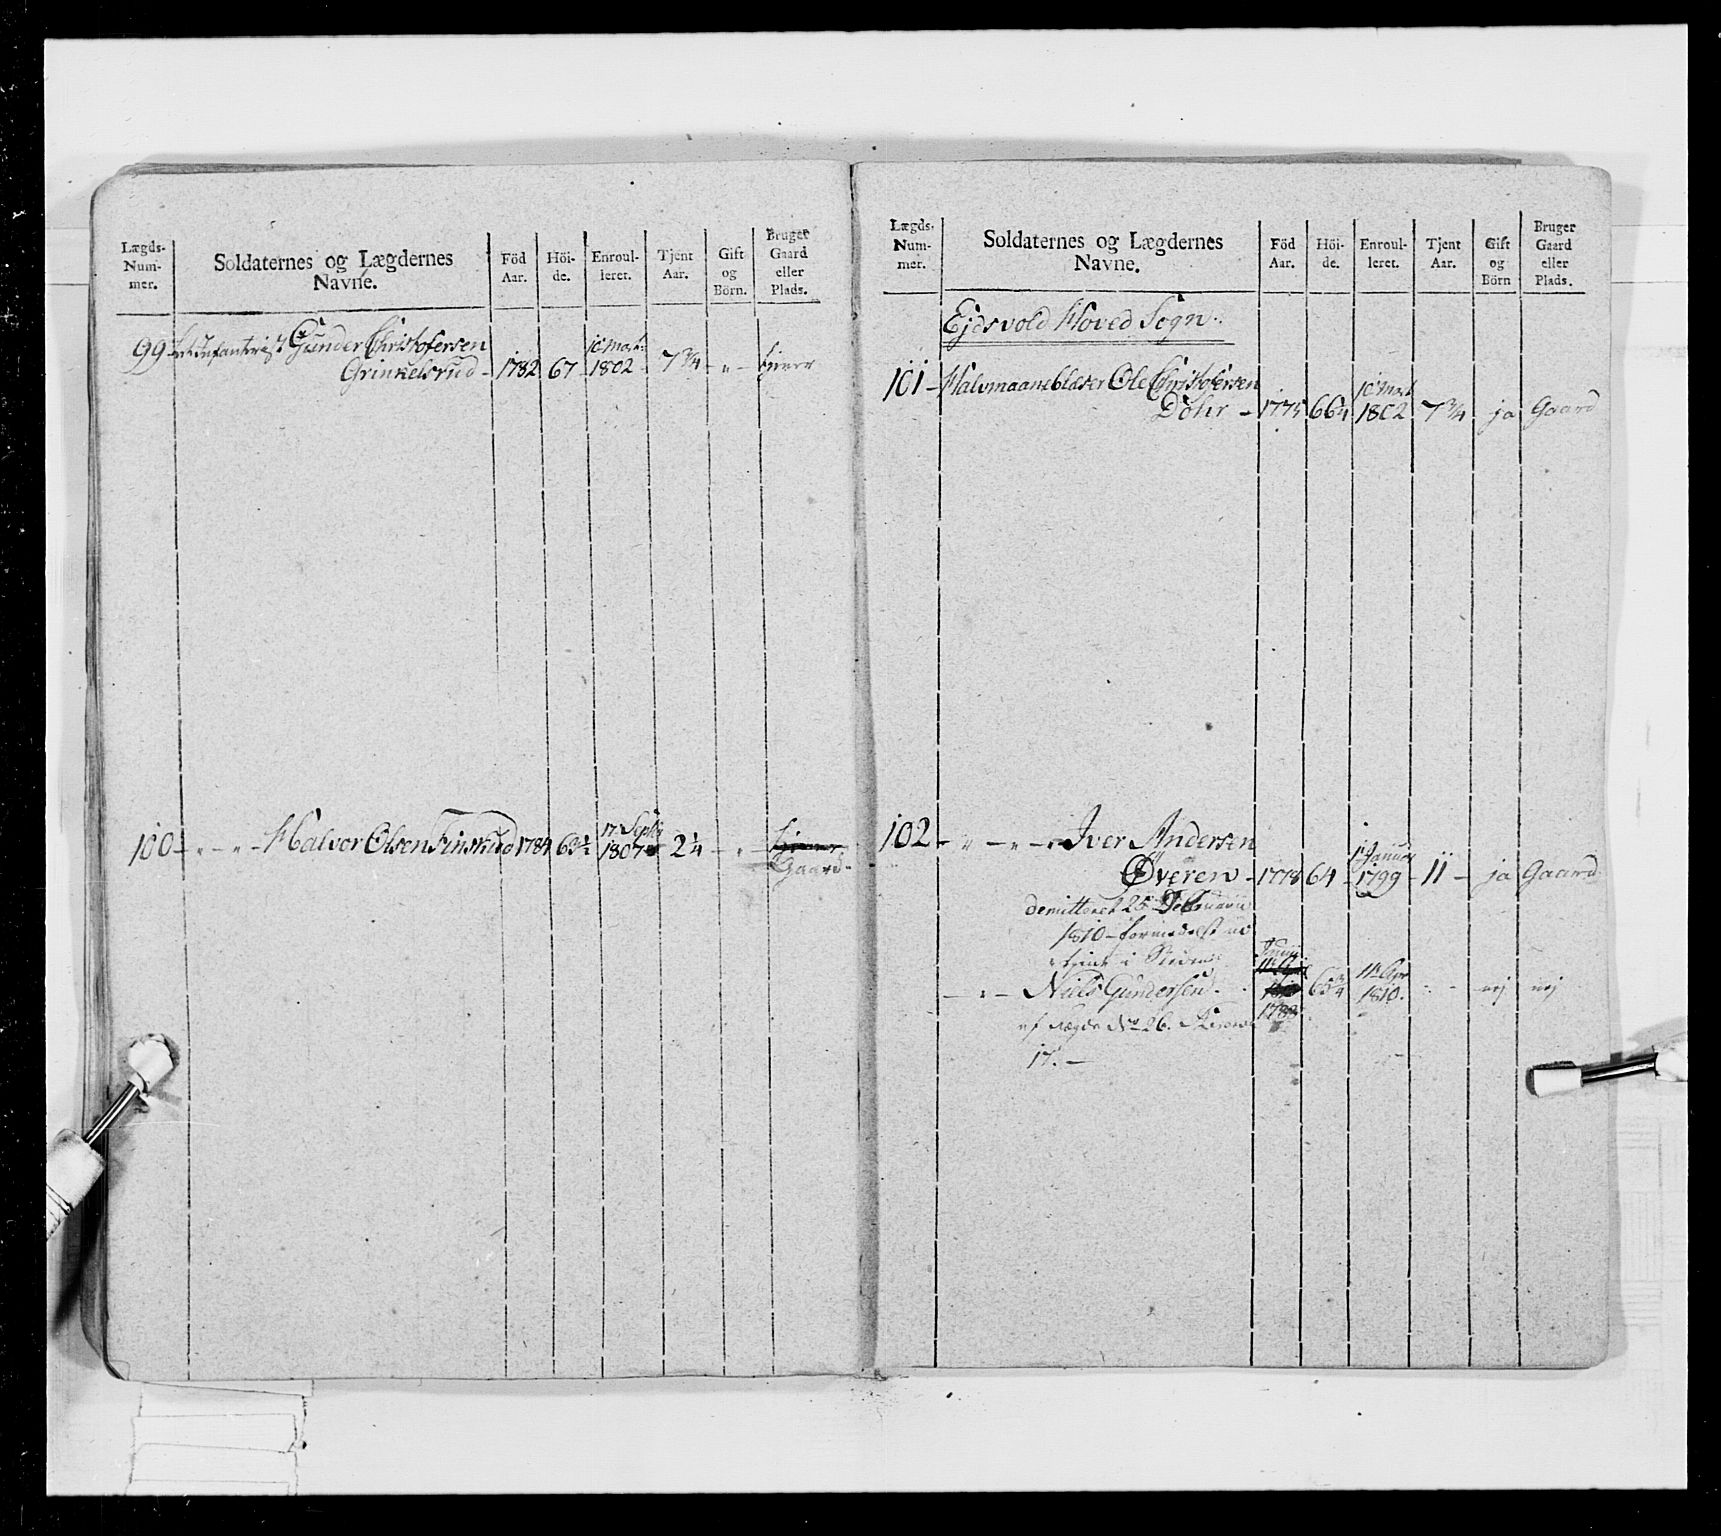 Lægds-
Num-
mer.
Soldaternes og Lægdernes
Navne.
Föd
Aar.
Höi-
de.
Enroul-
leret.
Tjent
Aar.
Gift
og
Börn.
Bruger
Gaard
eller
Plads.
99 Infanterist Gunder Christofersen
Grinkelsrud - 1782 67 10 Mart: 1802 - 7¾ - " - tjener
100 - " - " - Halvor Olsen Finskud 1784 63½ 17 Septbr 1807 2¼ - " - tjener
Gaard -
Lægds-
Num-
mer.
Soldaternes og Lægdernes
Navne.
Föd
Aar.
Höi-
de.
Enroul-
leret.
Tjent
Aar.
Gift
og
Börn
Bruger
Gaard
eller
Plads.
Ejdsvold Hoved Sogn.
101 - Halvmaaneblæser Ole Christofersen
Dohr - 1775 66¼ 10 Mart 1802 7¾ ja Gaard
102 - " - " - Iver Andersen
Øveren - 1778 64 - 1 Januar 1799 - 11 - ja Gaard
demitteret 25 Februarii
1810 - formedelst
i Steden
- " - Niels Gundersen 1783 65¾ 11 Apr 1810. nej nej
af Lægde No 26.
17. -